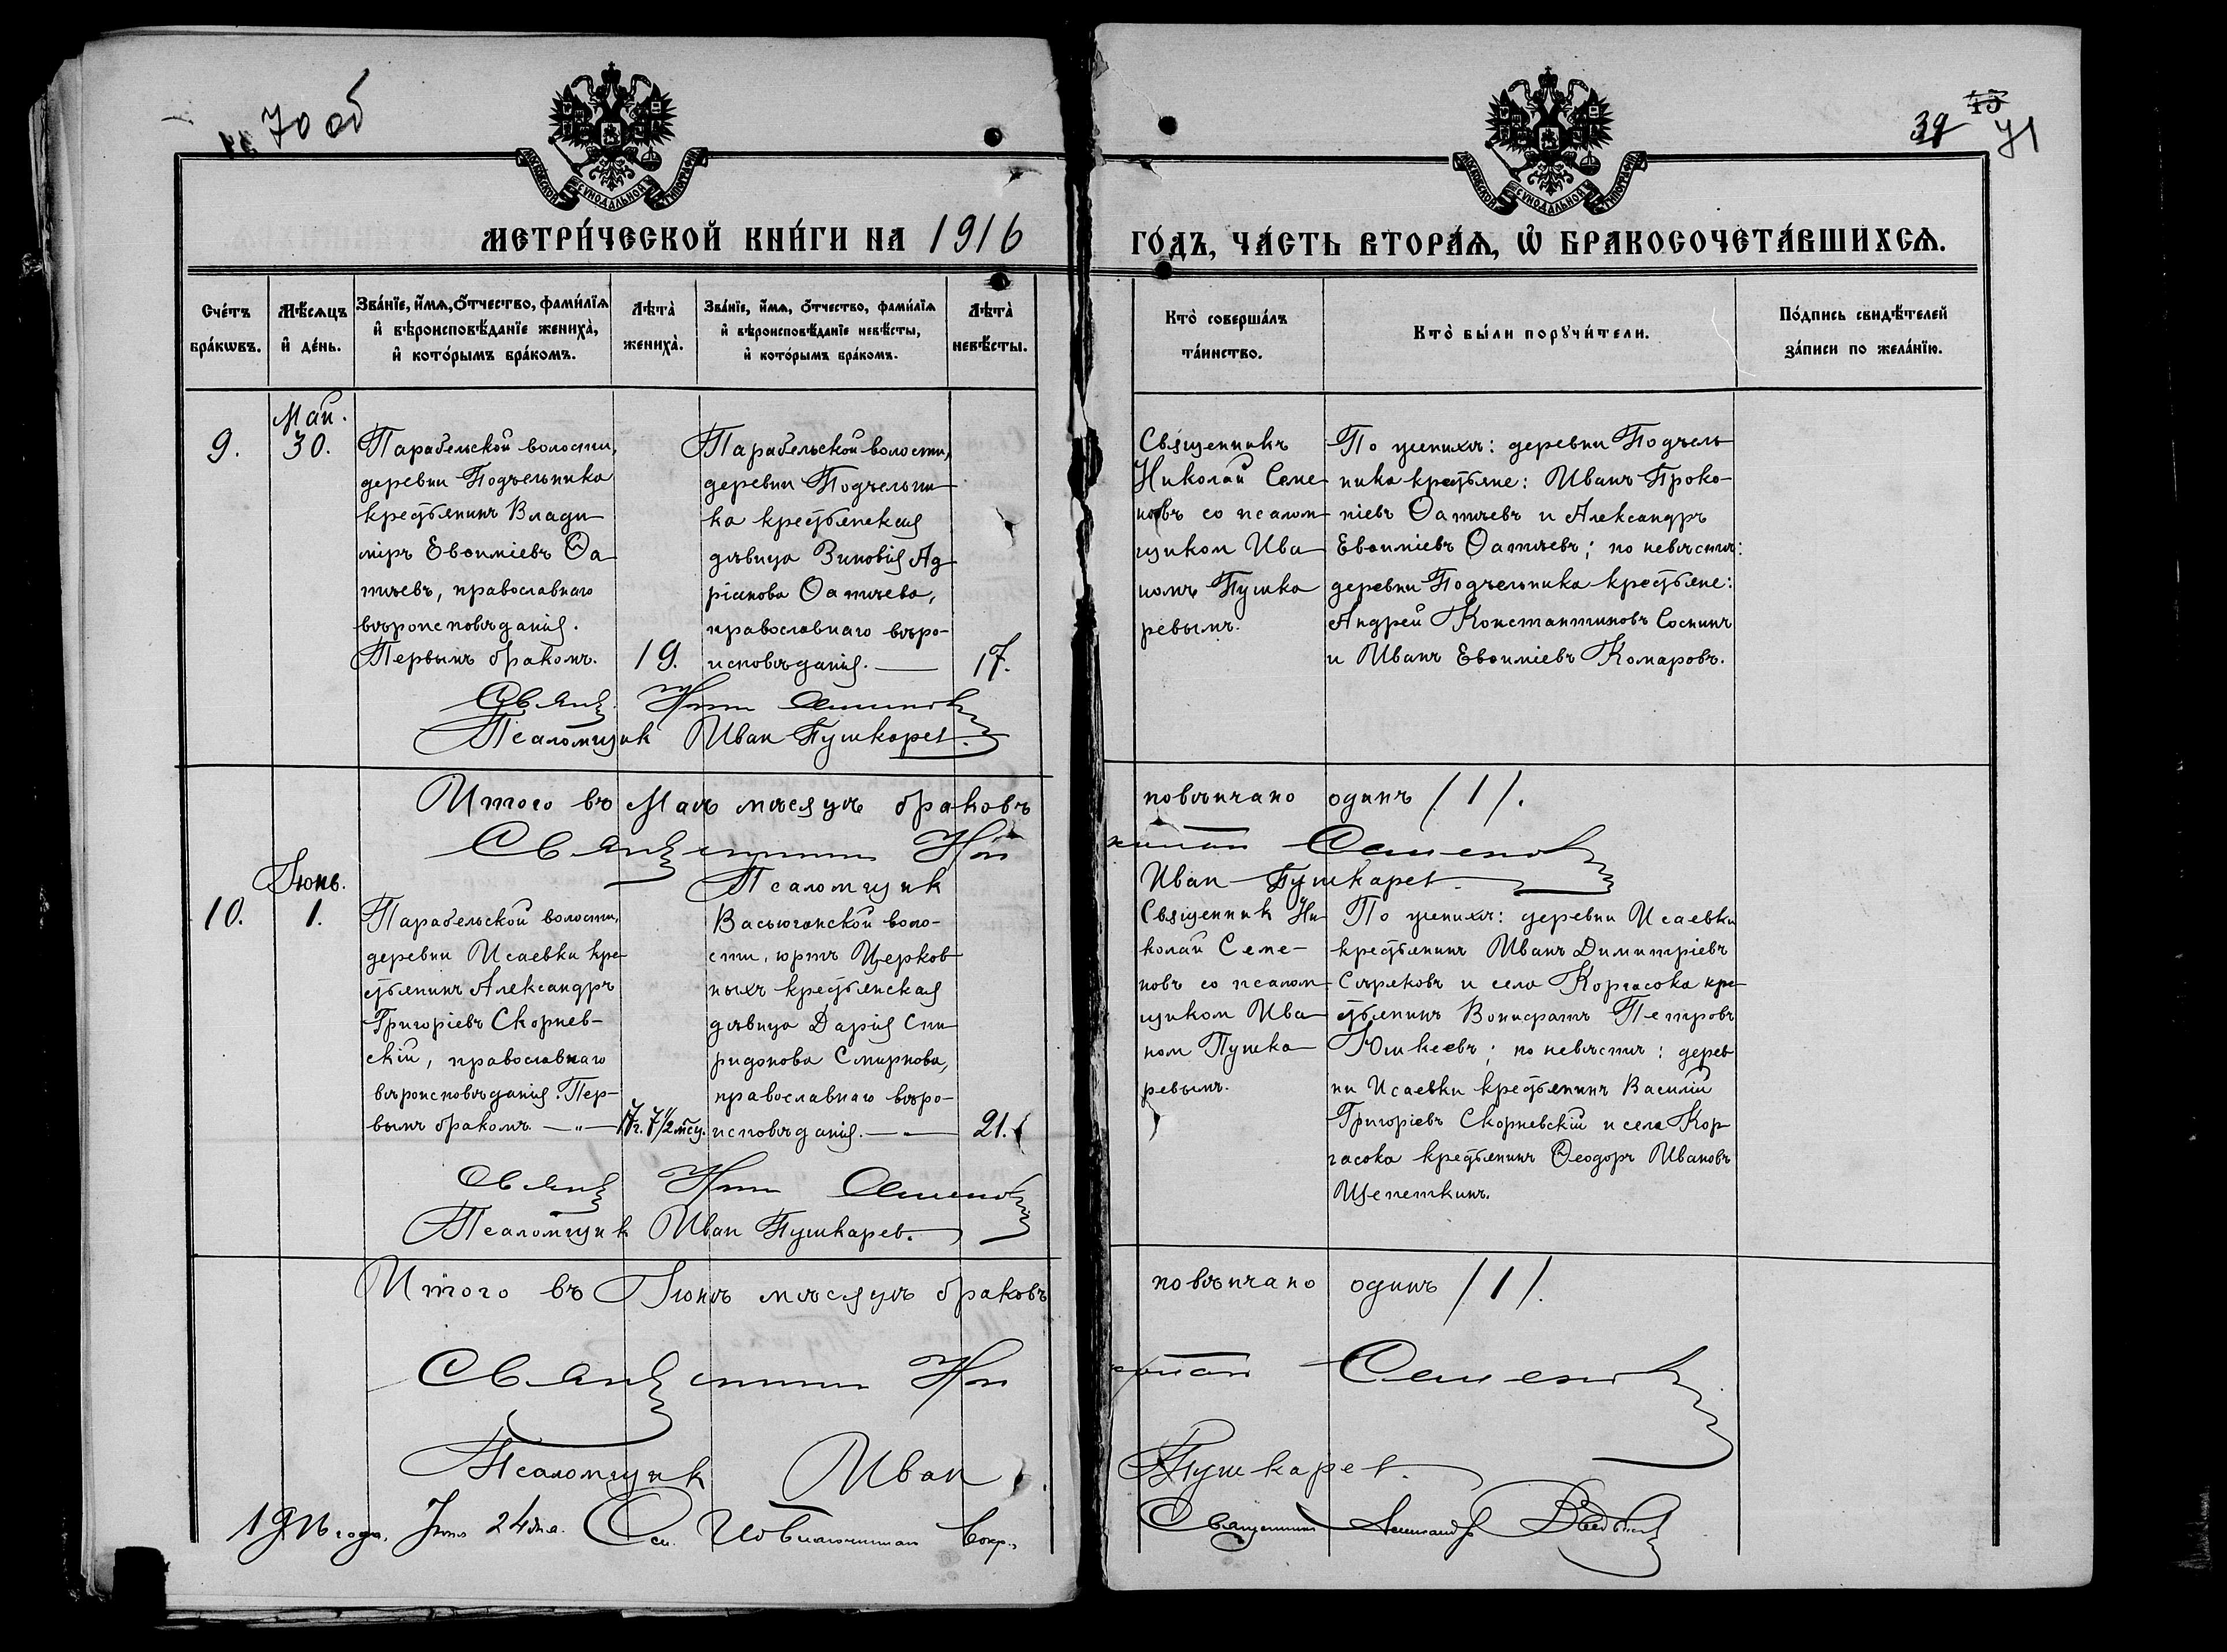 70 об
39
45
71
МОСКОВСКОЙ СѴНОДАЛЬНОЙ ТИПОГРАФІИ
МОСКОВСКОЙ СѴНОДАЛЬНОЙ ТИПОГРАФІИ
МЕТРИ́ЧЕСКОЙ КНИ́ГИ НА 1916
ГО́ДЪ, ЧА́СТЬ ВТОРА́Я, Ѡ БРАКОСОЧЕТА́ВШИХСЯ.
Сче́тъ
бра́кѡвъ.
Мѣ́сяцъ
и де́нь.
Зва́нїе, и́мѧ, ѻ́тчество, фами́лїѧ
и҆ вѣроисповѣ́данїе жениха̀,
и҆ кото́рымъ бра́комъ.
Лѣта̀
жениха̀.
Зва́нїе, и́мѧ, ѻ́тчество, фами́лїѧ
и҆ вѣроисповѣ́данїе невѣ́сты,
и҆ кото́рымъ бра́комъ.
Лѣта̀
невѣ́сты.
Кто̀ соверша́лъ
та́инство.
Кто̀ бы́ли порꙋчи́тели.
По́дпись свидѣ́телей
за́писи по жела́нїю.
9.
Май.
30.
Парабельской волости,
деревни Подъельника
крестьянинъ Влади-
міръ Евѳиміевъ Ѳа-
тѣевъ, православнаго
вѣроисповѣданія.
Первымъ бракомъ.
19.
Парабельской волости,
деревни Подъельни-
ка крестьянская
дѣвица Зиновія Ад-
ріанова Ѳатѣева,
православнаго вѣро-
исповѣданія. —
17.
Священникъ
Николай Семе-
новъ со псалом-
щиком Ива-
номъ Пушка-
ревымъ.
По женихѣ: деревни Подъель-
ника крестьяне: Иванъ Проко-
піевъ Ѳатѣевъ и Александръ
Евѳиміевъ Ѳатѣевъ; по невѣстѣ:
деревни Подъельника крестьяне:
Андрей Константиновъ Соснинъ
и Иванъ Евѳиміевъ Комаровъ.
Свящ. Ник Семенов
Псаломщик Иван Пушкарев.
Итого въ Маѣ мѣсяцѣ браковъ повѣнчано одинъ /1/.
Священник Николай Семенов
Псаломщик Иван Пушкарев.
10.
Іюнь.
1.
Парабельской волости,
деревни Исаевки кре-
стьянинъ Александръ
Григоріевъ Скорнев-
скій, православнаго
вѣроисповѣданія. Пер-
вымъ бракомъ. —"—
17 г. 7½ мсц.
Васьюганской воло-
сти, юртъ Церков-
ныхъ крестьянская
дѣвица Дарія Спи-
ридонова Смирнова,
православнаго вѣро-
исповѣданія. —
21.
Священник Ни-
колай Семе-
новъ со псалом-
щиком Ива-
ном Пушка-
ревымъ.
По женихѣ: деревни Исаевки
крестьянинъ Иванъ Димитріевъ
Сѣряковъ и села Каргасока кре-
стьянинъ Вонифатъ Петровъ
Юшкеевъ; по невѣстѣ: дерев-
ни Исаевки крестьянинъ Василій
Григоріевъ Скорневскій и села Кар-
гасока крестьянинъ Ѳеодоръ Ивановъ
Щепеткинъ.
Свящ. Ник Семенов
Псаломщик Иван Пушкарев.
Итого въ Іюнѣ мѣсяцѣ браковъ повѣнчано одинъ /1/.
Священник Николай Семенов
Псаломщик Иван Пушкарев.
1916 года, Іюня 24 дня. Священник Александр